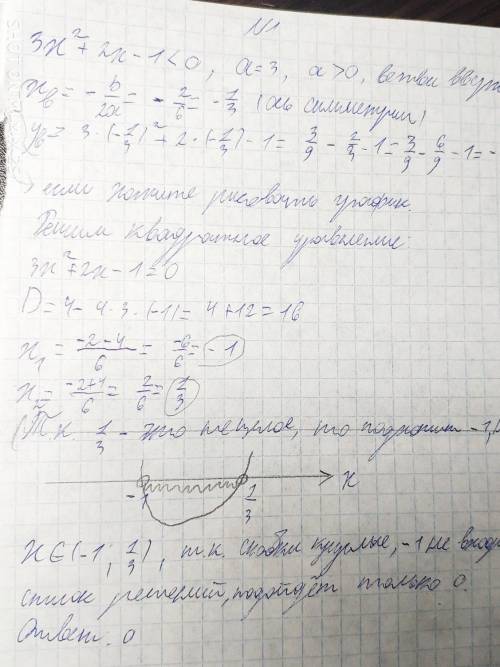 N1
3x² + 2x - 1 < 0, a = 3, a > 0, ветви вверх
x_в = -b/2a = -2/6 = -1/3 (ось симметрии)
y_в = 3·(-1/3)² + 2·(-1/3) - 1 = 3/9 - 2/3 - 1 = 3/9 - 6/9 - 1 = -
если хотите рисовать график.
Решим квадратное уравнение:
3x² + 2x - 1 = 0
D = 4 - 4·3·(-1) = 4 + 12 = 16
x₁ = (-2-4)/6 = -6/6 = -1
x₂ = (-2+4)/6 = 2/6 = 1/3
(Т.к. 1/3 - это не целое, то подходит -1,
-1 1/3 x
x ∈ (-1; 1/3), т.к. скобки круглые, -1 не входи
список решений, подойдёт только 0.
Ответ: 0